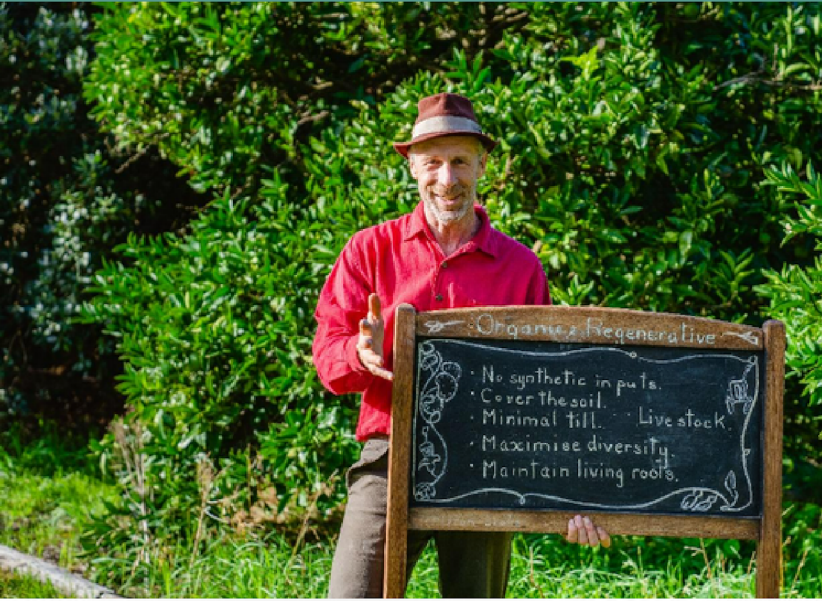 Organic & Regenerative
· No synthetic inputs.
· Cover the soil.
· Minimal till. · Livestock.
· Maximise diversity.
· Maintain living roots.